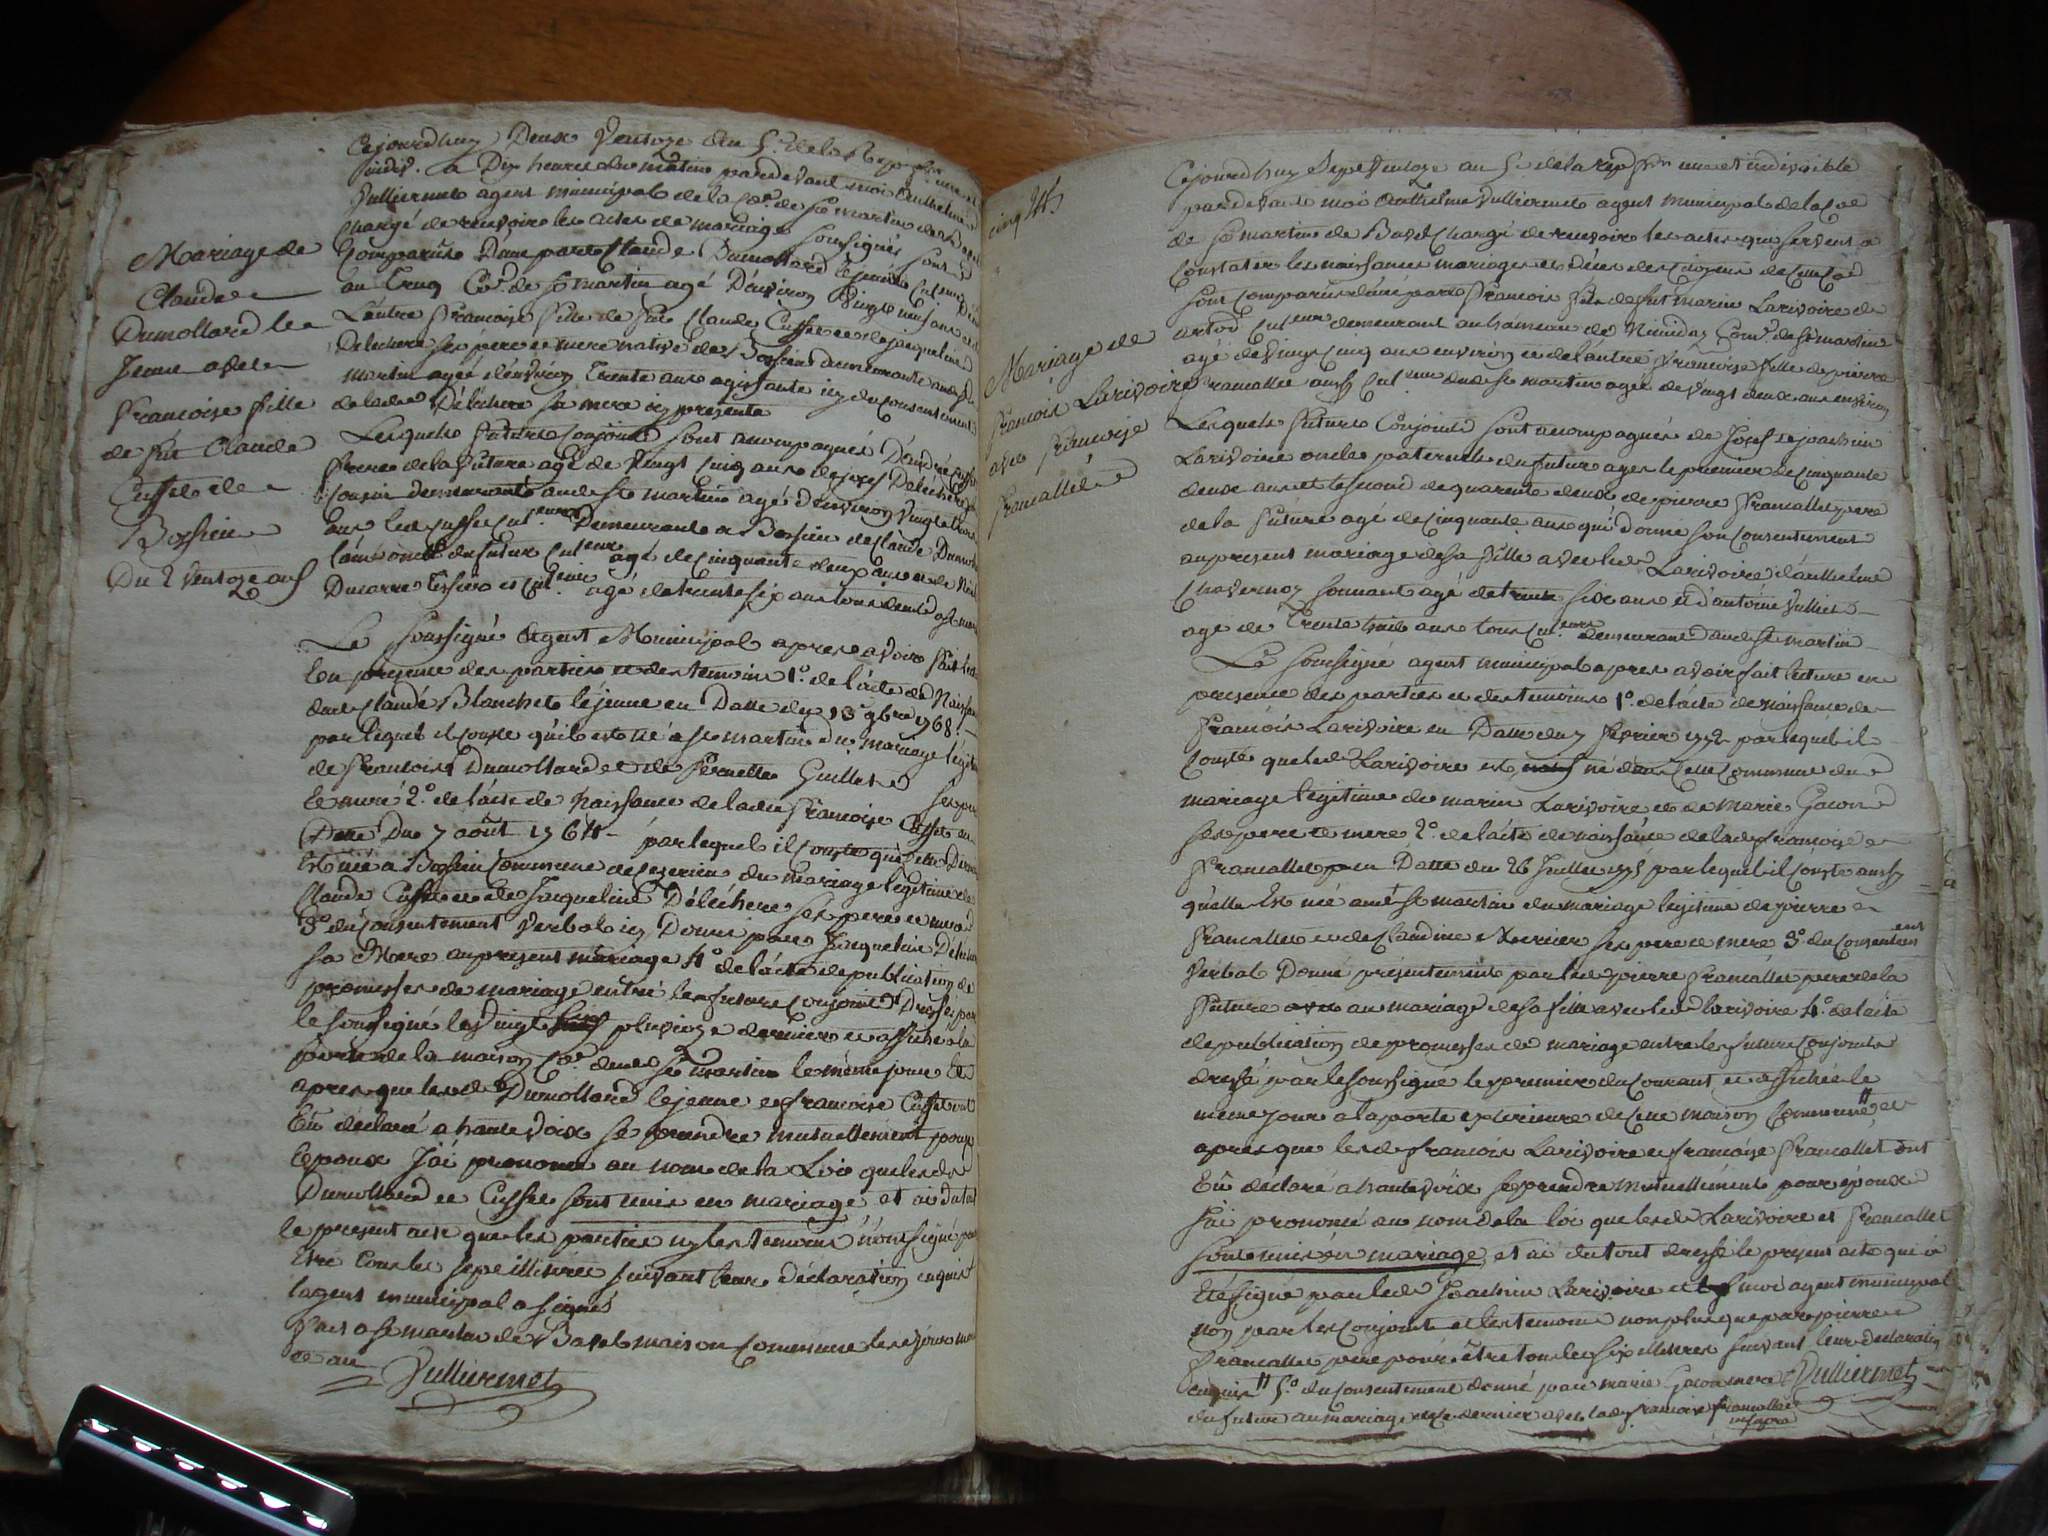 Mariage de
Claude
Dumollard le
Jeune avec
Francoise fille
de fût Claude
Cusset de
Bossieu
Du 2 Ventoze an 5
Cejourdhuy Deux Ventoze an 5.e de la Rep
indiv. a Dix heures du matin pardevant moi Anthelme
Vulliermet agent municipal de la Co.e de St martin de
chargé de recevoir les actes de mariage soussigné sont
Comparus Dune part Claude Dumollard lejeune
au Co.e de St martin agé D'environ Vingt neuf ans
L'autre francoise fille de fut Claude Cusset et de jacqueline
Delechere ses père et mere native de Bossieu demeurante
martin agée d'environ Trente ans agissante icy du consentement
de lade Délechere sa mere icy présente
Lesquels futurs Conjoints sont accompagnés D'andré Cusset
frere de la future agé de Vingt cinq ans de Delechere
cousin demeurants aud St martin agé d'environ Vingt
ans led cusset cul.eur Demeurants a Bossieu de claude Dumollard
l'ainé oncle du futur cul.eur agé de cinquante deux ans et de
Ducarre Tissier et cul.eur agé de trente six ans tous deud
Le soussigné Agent Municipal apres avoir fait
En présence des parties et des temoins 1.o de l'acte de Naissance
dud Claude Blanchet lejeune en Datte du 13 9bre 1768.
par lequel il conste qu'il est né a St martin du mariage
de francois Dumollard et de Pernette Guillet ses pere
Et mere 2.o de l'acte de Naissance de lade francoise Cusset en
Datte Du 7 août 1764 par lequel il conste qu'elle
Est née a Bossieu Commune de du Mariage legitime de
Claude Cusset et de Jacqueline Délechere ses pere et mere
3.o du Consentement Verbal icy Donné par Jacqueline
sa Mere au present mariage 4.o de l'acte de publication de
promesses de mariage entre les futurs Conjoints Dressé par
le soussigné le Vingt pluvioze dernier et affiché a la
porte de la maison Co.e dud St martin le même jour Et
apres que lesd Dumollard lejeune et francoise Cusset ont
Eu déclaré a haute voix se prendre mutuellement pour
Epoux J'ai prononcé au nom de la Loi que lesd
Dumollard et Cusset sont unis en mariage et ai du tout
le present acte que les parties ny les temoins n'ont signé pour
Etre tous les sept illitérés suivant leur déclaration enquis
lagent municipal a signé
fait a St martin de Bavel maison Commune lesd jour mois
et an Vulliermet
cinq
Mariage de
francois Larivoire
avec francoise
francallet
Cejourdhuy Sept Ventoze an 5.e de la rep une et indivisible
pardevant moi Anthelme Vulliermet agent municipal de la Co.e
de St martin de Bavel chargé de recevoir les actes qui servent a
Constater les naissances mariages et Déces des Citoyens de
sont comparus d'une part francois fils de fut marin Larivoire de
artod cul.eur demeurant au hameau de Comu.e de St martin
agé de Vingt cinq ans environ et de l'autre francoise fille de pierre
francallet aussy cul.eur dud St martin agée de Vingt deux ans environ
Lesquels futurs Conjoints sont accompagnés de Josef et joachim
Larivoire oncles paternels du futur agés le premier de Cinquante
deux ans et le second de quarante deux de pierre francallet pere
de la future agé de Cinquante ans qui donne son Consentement
au present mariage de sa fille avec led Larivoire d'anthelme
agé de trente six ans et d'antoine Vullier
agé de trente huit ans tous cul.eurs demeurant aud St martin
Le soussigné agent municipal apres avoir fait lecture en
presence des parties et des temoins 1.o de l'acte de naissance de
francois Larivoire en Datte du 7 fevrier 1772 par lequel il
Conste que led Larivoire est né dans cette Commune du
mariage legitime de marin Larivoire et de marie Gacon
ses pere et mere 2.o de l'acte de naissance de lade francoise
francallet en Datte du 26 Juillet 1775 par lequel il conste aussy
qu'elle Est née aud St martin du mariage legitime de pierre
francallet et de Claudine ses pere et mere 3.o du consentement
verbal Donné présentement par led pierre francallet pere de la
future au mariage de sa fille avec led larivoire 4.o de l'acte
de publication de promesses de mariage entre les futurs Conjoints
dressé par le soussigné le premier du Courant et affiché le
meme jour a la porte exterieure de cette maison Commune et
apres que lesd francois Larivoire et francoise francallet ont
Eu déclaré a haute voix se prendre mutuellement pour époux
J'ai prononcé au nom de la loi que lesd Larivoire et francallet
sont unis en mariage et ai du tout dressé le present acte qui a
Eté signé par led Joachim Larivoire et moi agent municipal
non par les Conjoints et les temoins non plus que par pierre
francallet pere pour être tous les six illitérés suivant leur declaration
enquis 5.o du consentement donné par marie Gacon mere Vulliermet
du futur au mariage de ce dernier avec lade francoise francallet